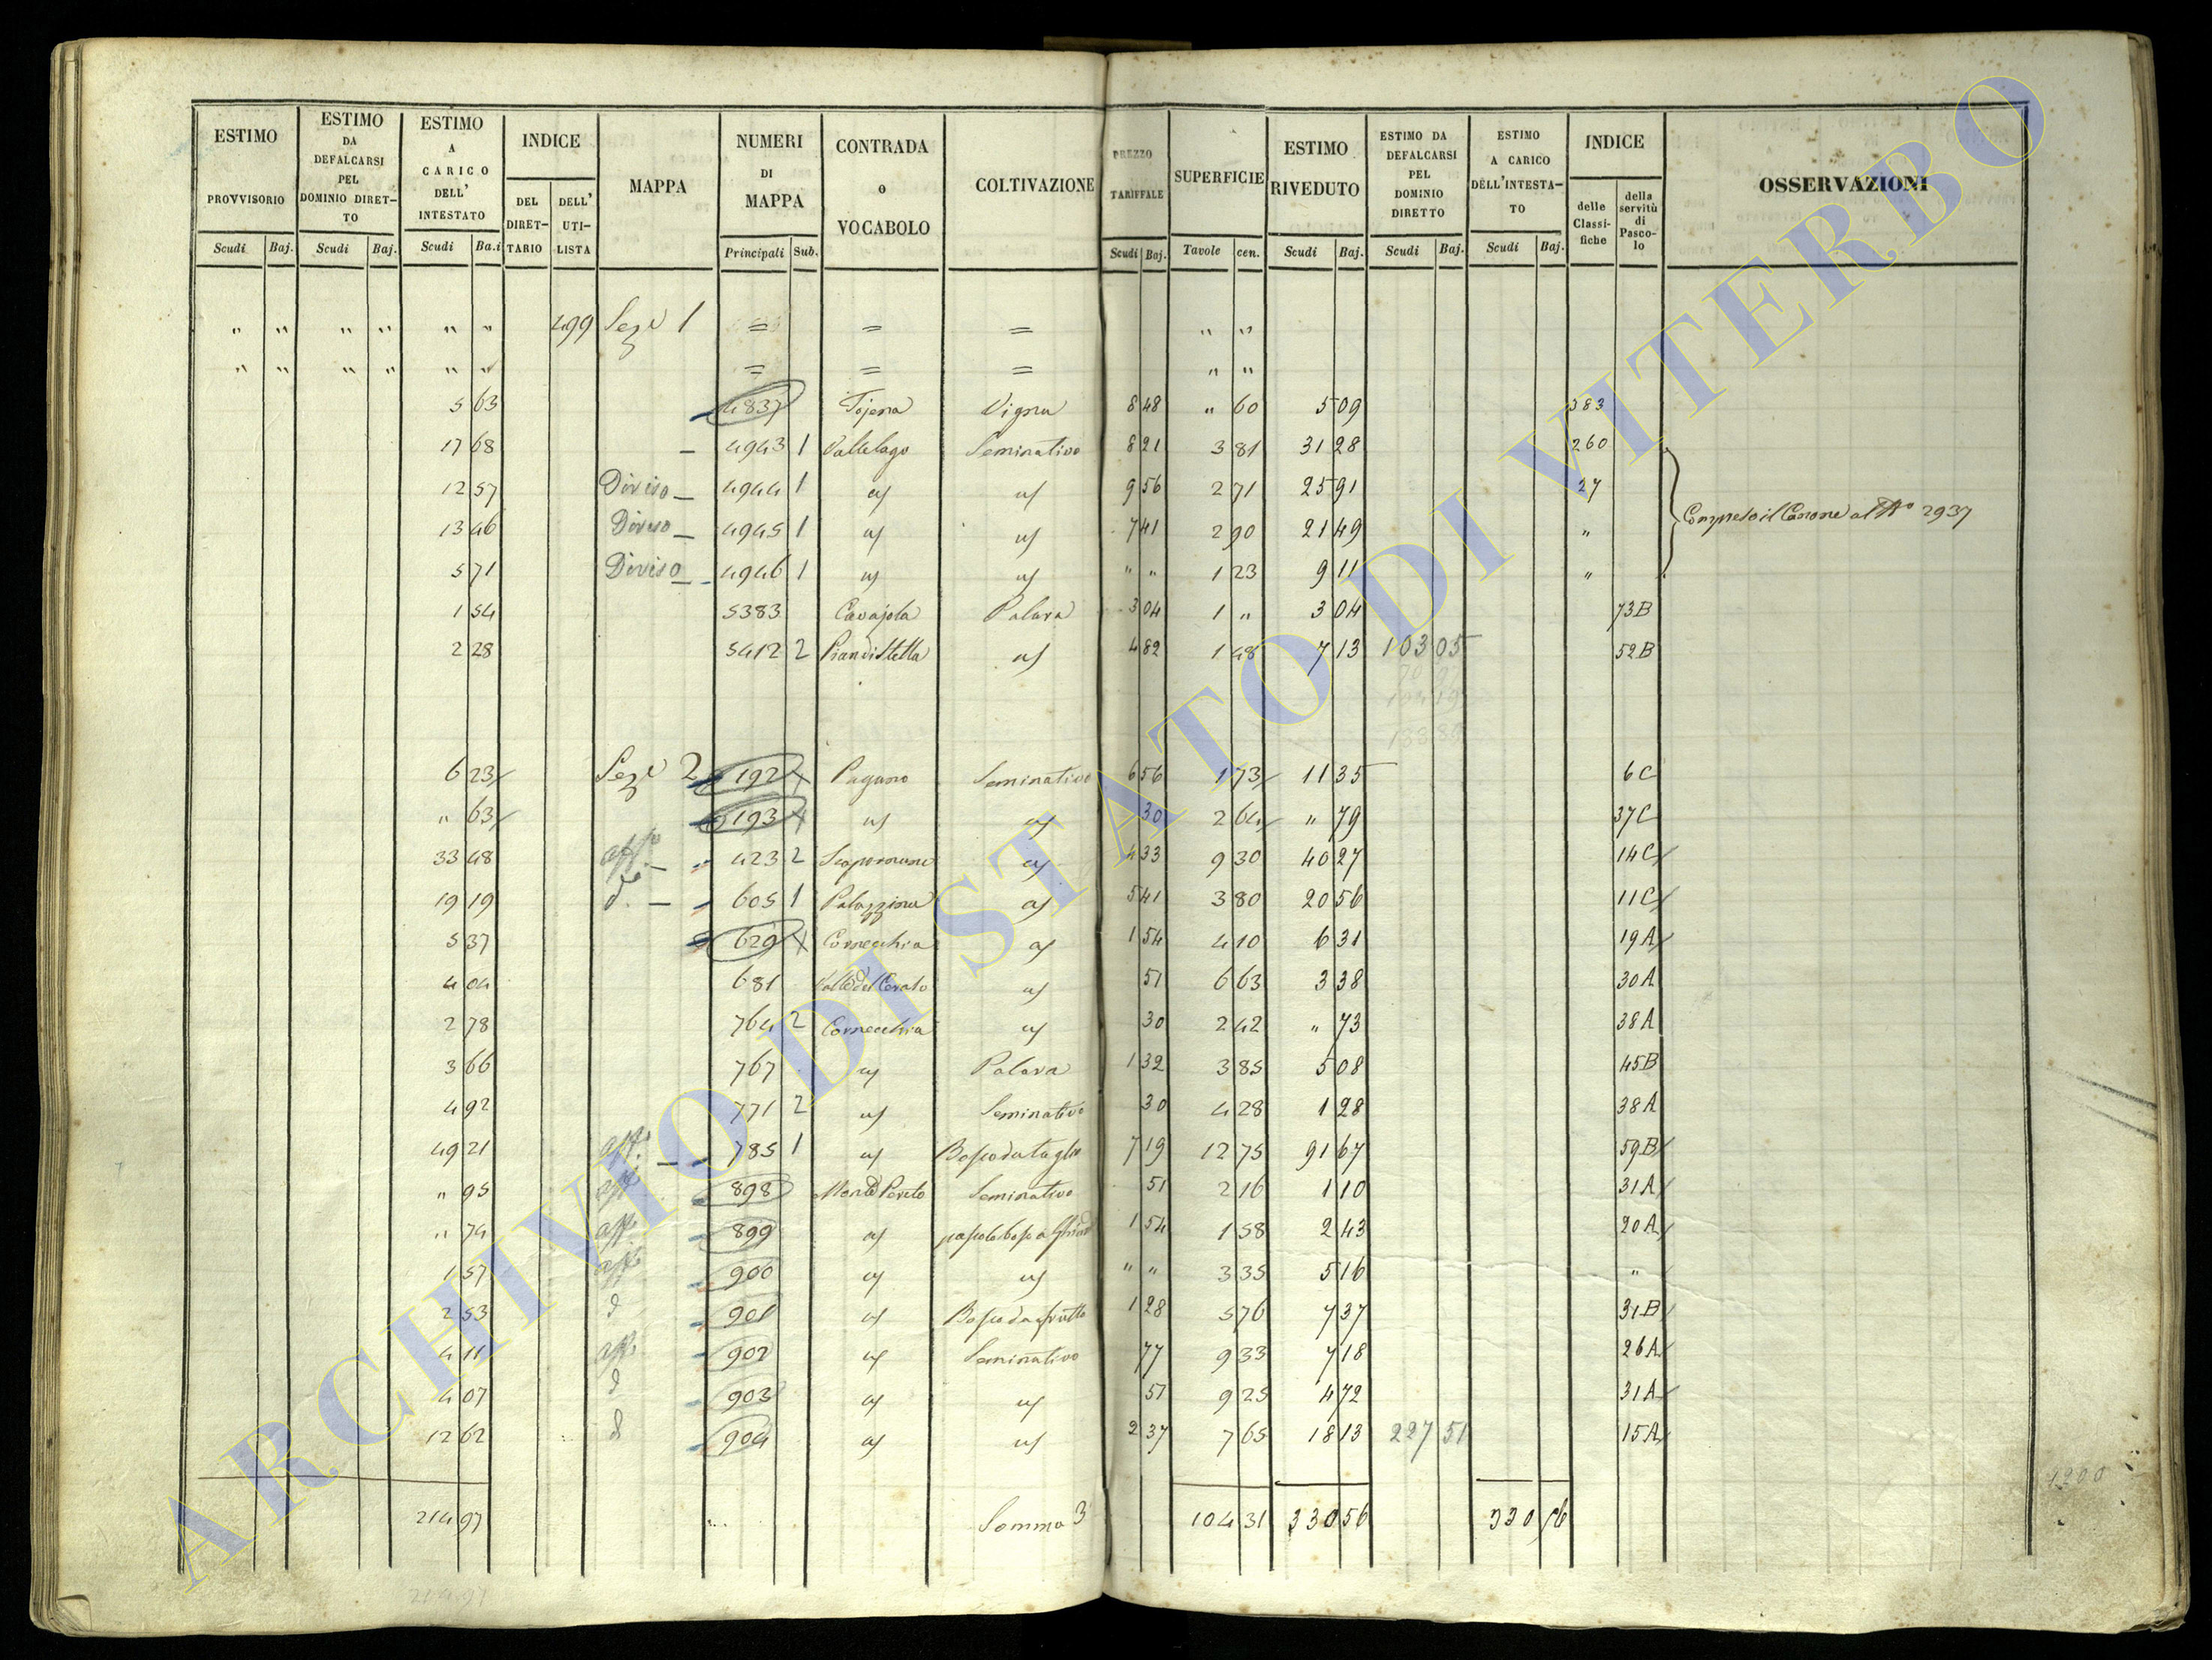 ESTIMO PROVVISORIO
ESTIMO DA DEFALCARSI PEL DOMINIO DIRET-TO
ESTIMO A CARICO DELL' INTESTATO
INDICE
DEL DIRET-TARIO
DELL' UTI-LISTA
MAPPA
NUMERI DI MAPPA
CONTRADA o VOCABOLO
COLTIVAZIONE
PREZZO TARIFFALE
SUPERFICIE
ESTIMO RIVEDUTO
ESTIMO DA DEFALCARSI PEL DOMINIO DIRETTO
ESTIMO A CARICO DELL'INTESTA-TO
INDICE
delle Classi-fiche
della servitù di Pasco-lo
OSSERVAZIONI
Scudi Baj. Scudi Baj. Scudi Ba.i Principali Sub. Scudi Baj. Tavole cen. Scudi Baj. Scudi Baj. Scudi Baj.
" " " " " " 499 Seze 1 = = = " "
" " " " " " = = = " "
5 63 4837 Vigna 8 48 " 60 5 09 583
17 68 4943 1 Vallelago Seminativo 8 21 3 81 31 28 260
12 57 Diviso 4944 1 9 56 2 71 25 91 27
13 46 Diviso 4945 1 7 41 2 90 21 49 "
Compreso il Canone al No 2937
5 71 Diviso 4946 1 " " 1 23 9 11 "
1 54 5383 Cavajola 3 04 1 " 3 04 73B
2 28 5412 2 4 82 1 48 7 13 103 05 52B
6 23 Seze 2 192 Pagano Seminativo 6 56 1 73 11 35 6C
" 63 193 30 2 64 " 79 37C
33 48 423 2 4 33 9 30 40 27 14C
19 19 605 1 Palazzina 5 41 3 80 20 56 11C
5 37 629 Cornecchia 1 54 4 10 6 31 19A
4 04 681 Valle del Cerato 51 6 63 3 38 30A
2 78 764 2 Cornecchia 30 2 42 " 73 38A
3 66 767 1 32 3 85 5 08 45B
4 92 771 2 Seminativo 30 4 28 1 28 38A
49 21 aff. 785 1 Bosco da taglio 7 19 12 75 91 67 59B
" 95 898 Seminativo 51 2 16 1 10 31A
" 74 aff. 899 1 54 1 58 2 43 20A
1 57 900 " " 3 35 5 16 "
2 53 901 Bosco da frutto 1 28 5 76 7 37 31B
4 11 aff. 902 Seminativo 77 9 33 7 18 26A
4 07 903 51 9 25 4 72 31A
12 62 904 2 37 7 65 18 13 227 51 15A
214 97 Somma 3 104 31 330 56 330 56
1200
214 97
ARCHIVIO DI STATO DI VITERBO